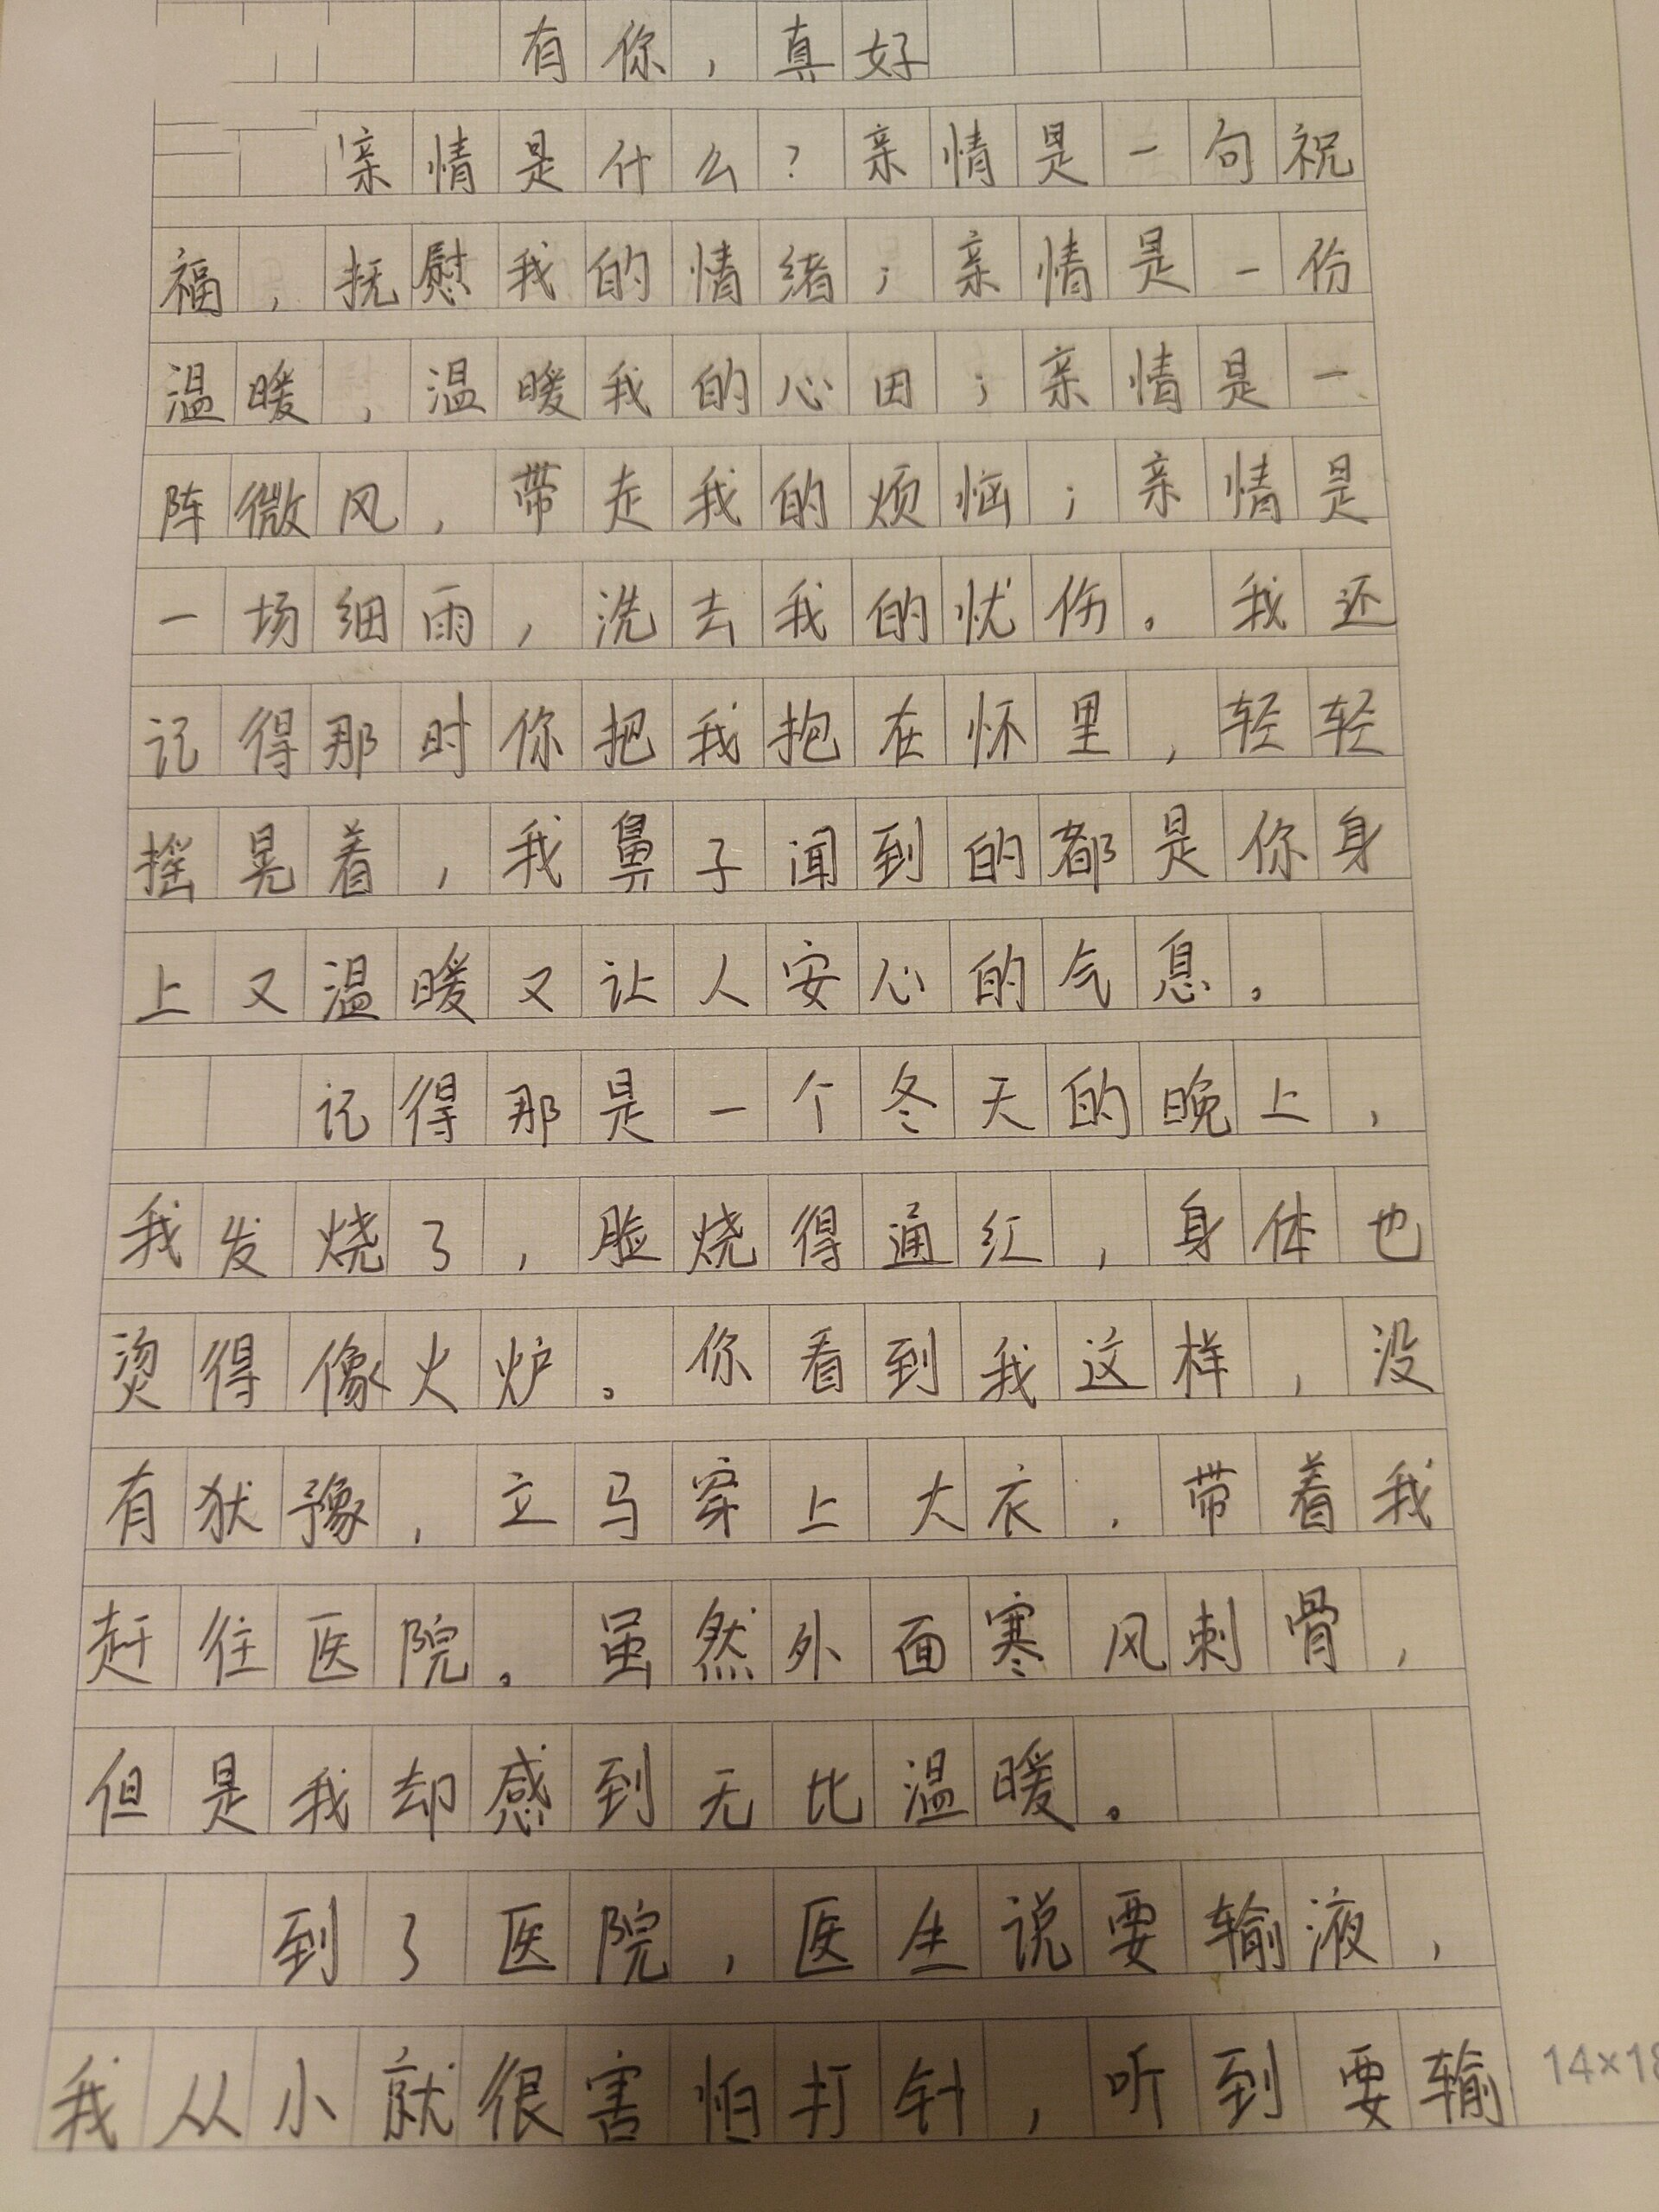 有你，真好
亲情是什么？亲情是一句祝
福，抚慰我的情绪；亲情是一份
温暖，温暖我的心田；亲情是一
阵微风，带走我的烦恼；亲情是
一场细雨，洗去我的忧伤。我还
记得那时你把我抱在怀里，轻轻
摇晃着，我鼻子闻到的都是你身
上又温暖又让人安心的气息。
记得那是一个冬天的晚上，
我发烧了，脸烧得通红，身体也
烫得像火炉。你看到我这样，没
有犹豫，立马穿上大衣，带着我
赶往医院。虽然外面寒风刺骨，
但是我却感到无比温暖。
到了医院，医生说要输液，
我从小就很害怕打针，听到要输